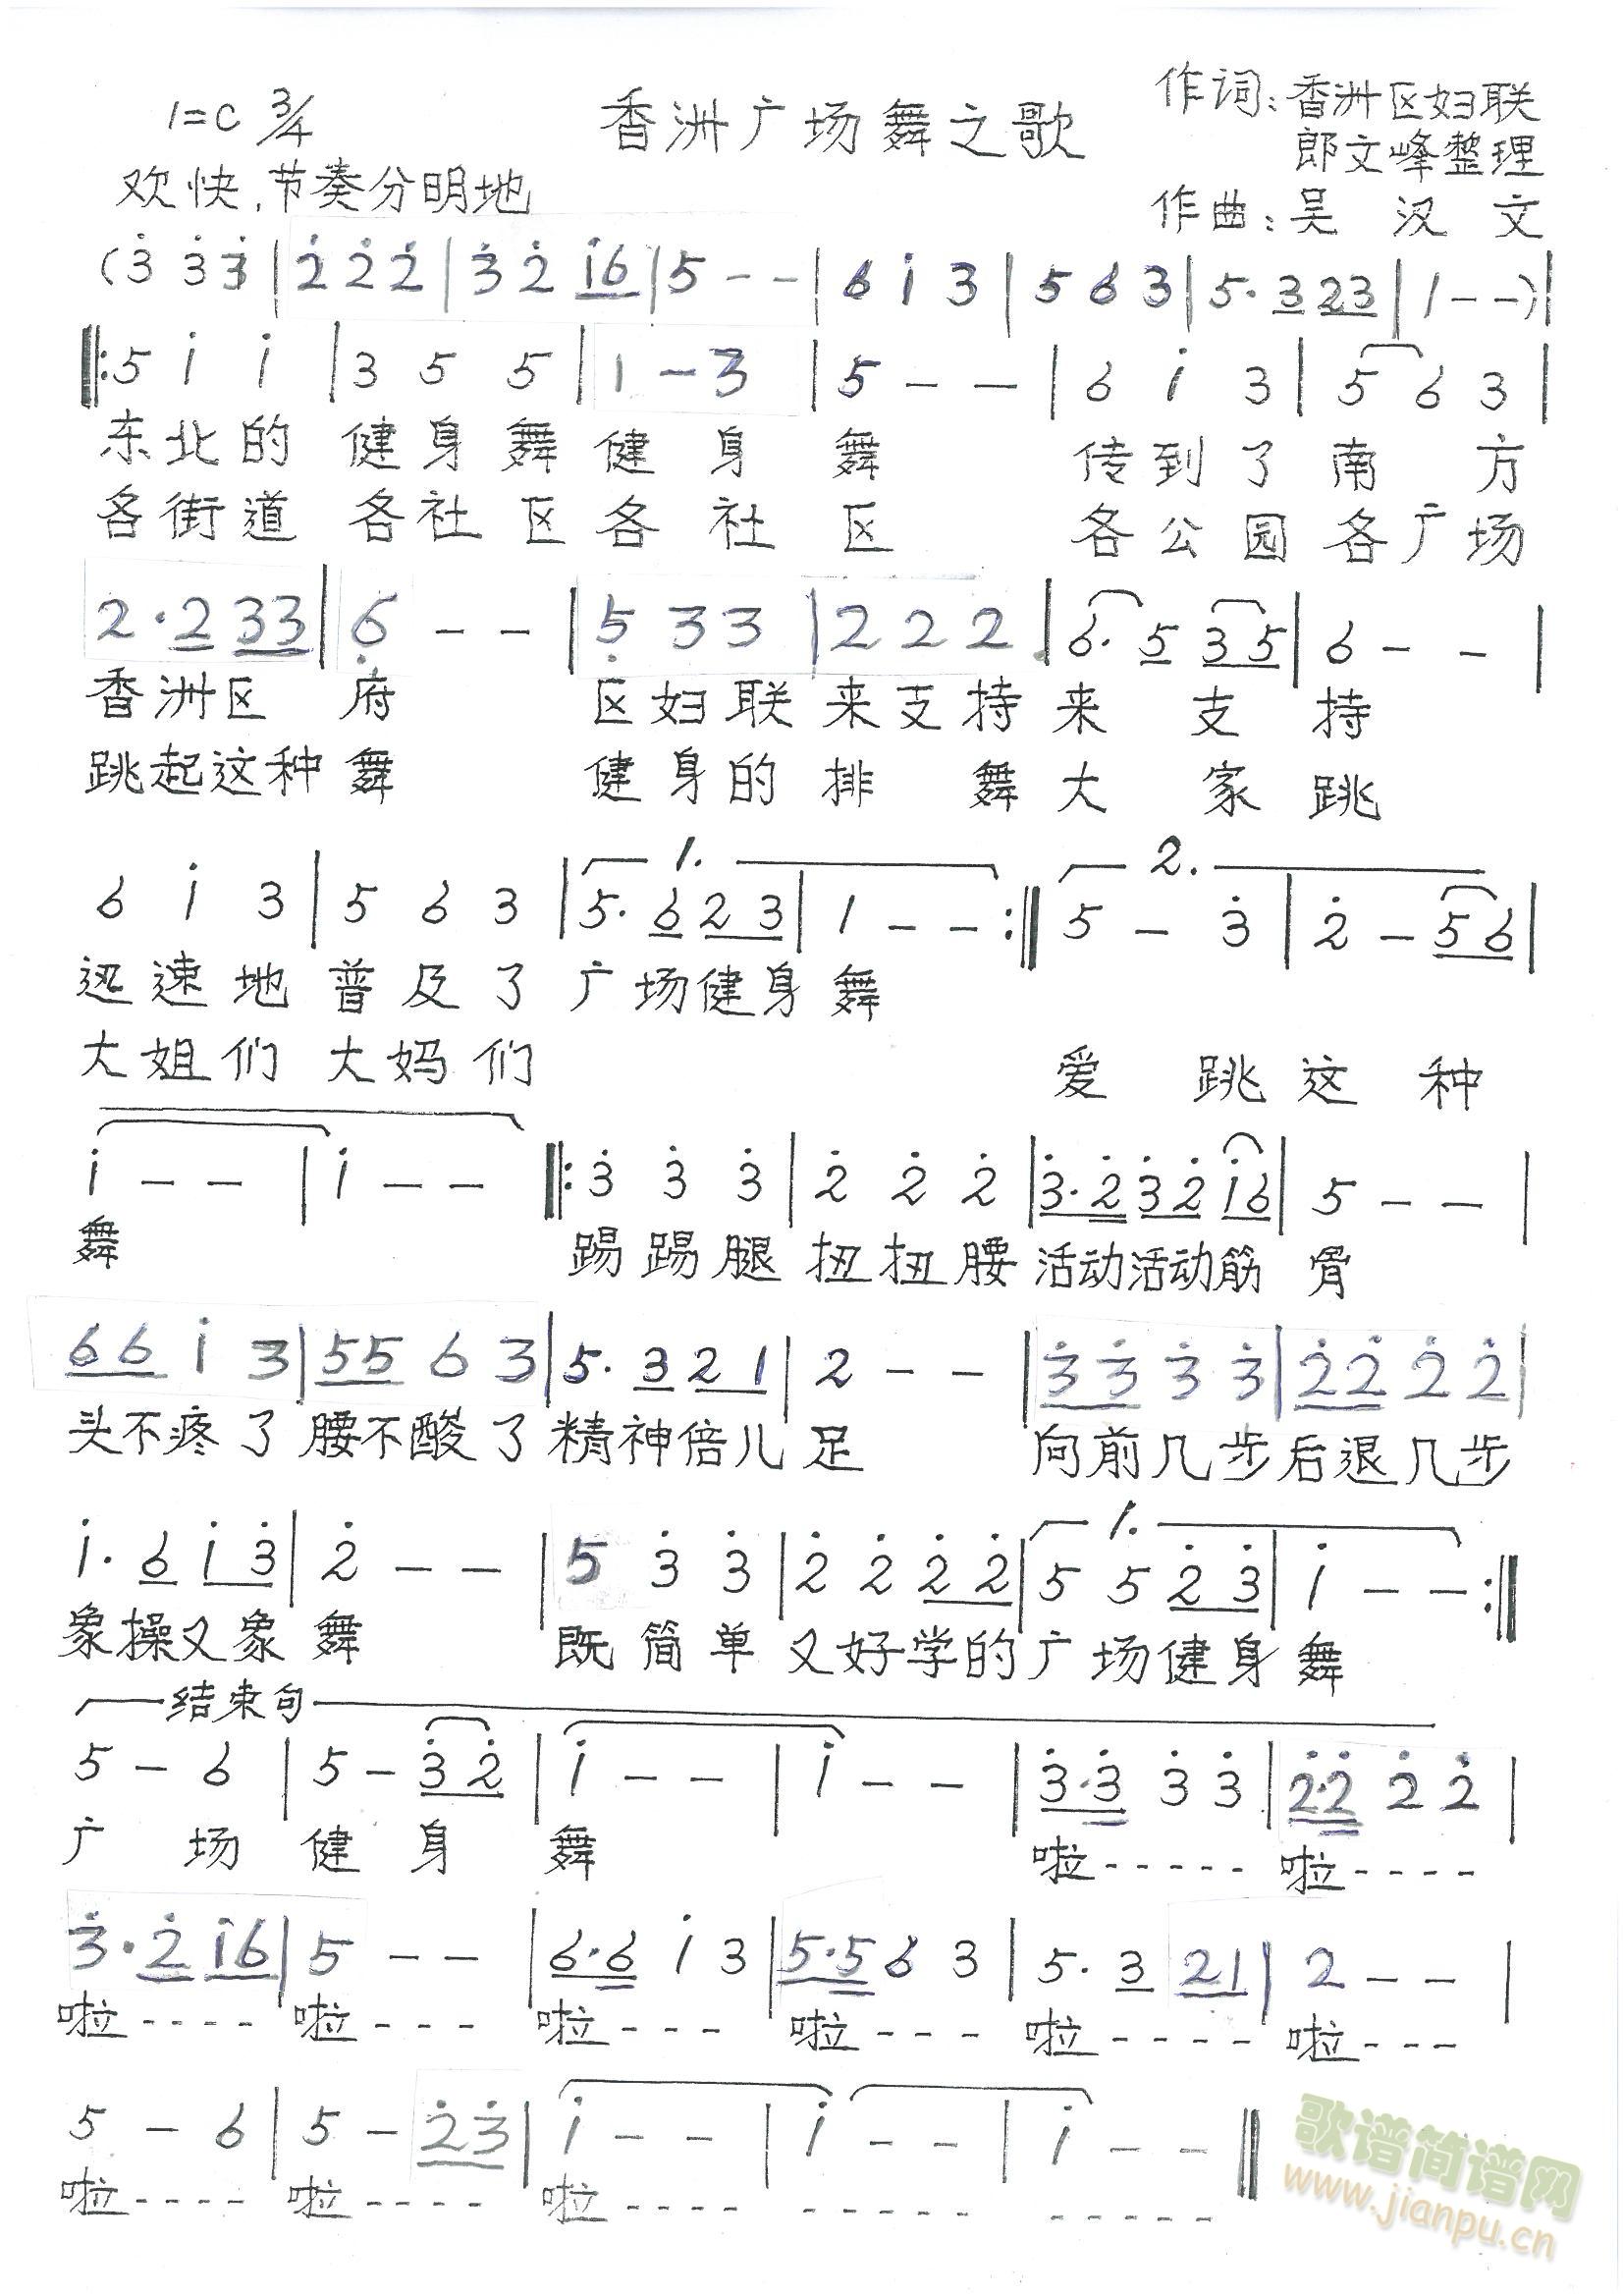 1=C 3/4
香洲广场舞之歌
作词:香洲区妇联
郎文峰整理
欢快,节奏分明地
作曲:吴汉文
(3̇ 3̇ 3̇ | 2̇ 2̇ 2̇ | 3̇ 2̇ 1̇6 | 5 - - | 6 1̇ 3 | 5 6 3 | 5. 3 23 | 1 - -) |
‖: 5 1̇ 1̇ | 3 5 5 | 1 - 3 | 5 - - | 6 1̇ 3 | 5 6 3 |
东北的 健身舞 健身舞 传到了 南方
各街道 各社区 各社区 各公园 各广场
2. 2 33 | 6̣ - - | 5̣ 3 3 | 2 2 2 | 6. 5 35 | 6 - - |
香洲区 府 区妇联 来支持 来支持
跳起这种 舞 健身的 排舞 大家跳
6 1̇ 3 | 5 6 3 | 1. 5. 6 23 | 1 - - :‖ 2. 5 - 3̇ | 2̇ - 56 |
迅速地 普及了 广场健身 舞
大姐们 大妈们 爱跳这种
1̇ - - | 1̇ - - ‖: 3̇ 3̇ 3̇ | 2̇ 2̇ 2̇ | 3̇.2̇ 3̇2̇ 1̇6 | 5 - - |
舞 踢踢腿 扭扭腰 活动活动筋 骨
66 1̇ 3 | 55 6 3 | 5. 3 21 | 2 - - | 3̇3̇ 3̇ 3̇ | 2̇2̇ 2̇ 2̇ |
头不疼了 腰不酸了 精神倍儿 足 向前几步 后退几步
1̇. 6 1̇3̇ | 2̇ - - | 5 3̇ 3̇ | 2̇ 2̇ 2̇2̇ | 1. 5 5 2̇3̇ | 1̇ - - :‖
象操又象 舞 既简单 又好学的 广场健身 舞
结束句
5 - 6 | 5 - 3̇2̇ | 1̇ - - | 1̇ - - | 3̇.3̇ 3̇ 3̇ | 2̇.2̇ 2̇ 2̇ |
广场 健身 舞 啦----- 啦----
3̇. 2̇ 1̇6 | 5 - - | 6.6 1̇ 3 | 5.5 6 3 | 5. 3 21 | 2 - - |
啦---- 啦--- 啦--- 啦--- 啦---- 啦---
5 - 6 | 5 - 2̇3̇ | 1̇ - - | 1̇ - - | 1̇ - - ‖
啦---- 啦---- 啦---- ----- -----
歌谱简谱网
www.jianpu.cn